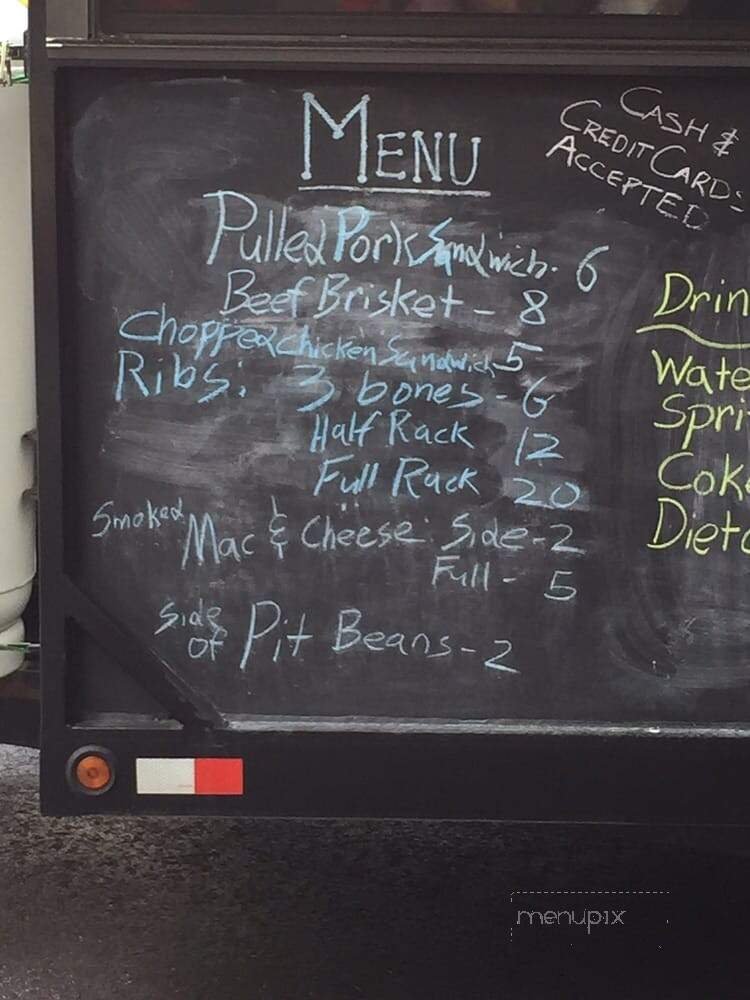 MENU
CASH &
CREDIT CARDS
ACCEPTED
Pulled Pork Sandwich. 6
Beef Brisket - 8
Chopped Chicken Sandwich 5
Ribs: 3 bones - 6
Half Rack 12
Full Rack 20
Smoked Mac & Cheese: Side - 2
Full - 5
Side of Pit Beans - 2
Drin
Wate
Spri
Coke
Diet
menupix